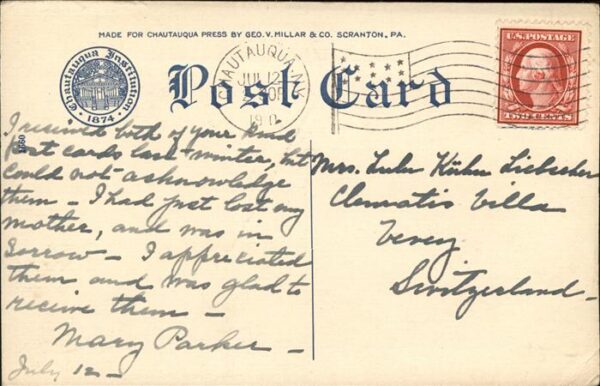 MADE FOR CHAUTAUQUA PRESS BY GEO. V. MILLAR & CO. SCRANTON, PA.
Chautauqua Institution
1874
Post Card
CHAUTAUQUA, N.Y.
JUL 12
U.S. POSTAGE
TWO CENTS
I received both of your kind
post cards last winter, but
could not acknowledge
them – I had just lost my
mother, and was in
sorrow – I appreciated
them and was glad to
receive them –
Mary Parker –
July 12 –
Mrs. Lulu Kühn Liebscher
Clematis Villa
Vevey
Switzerland –